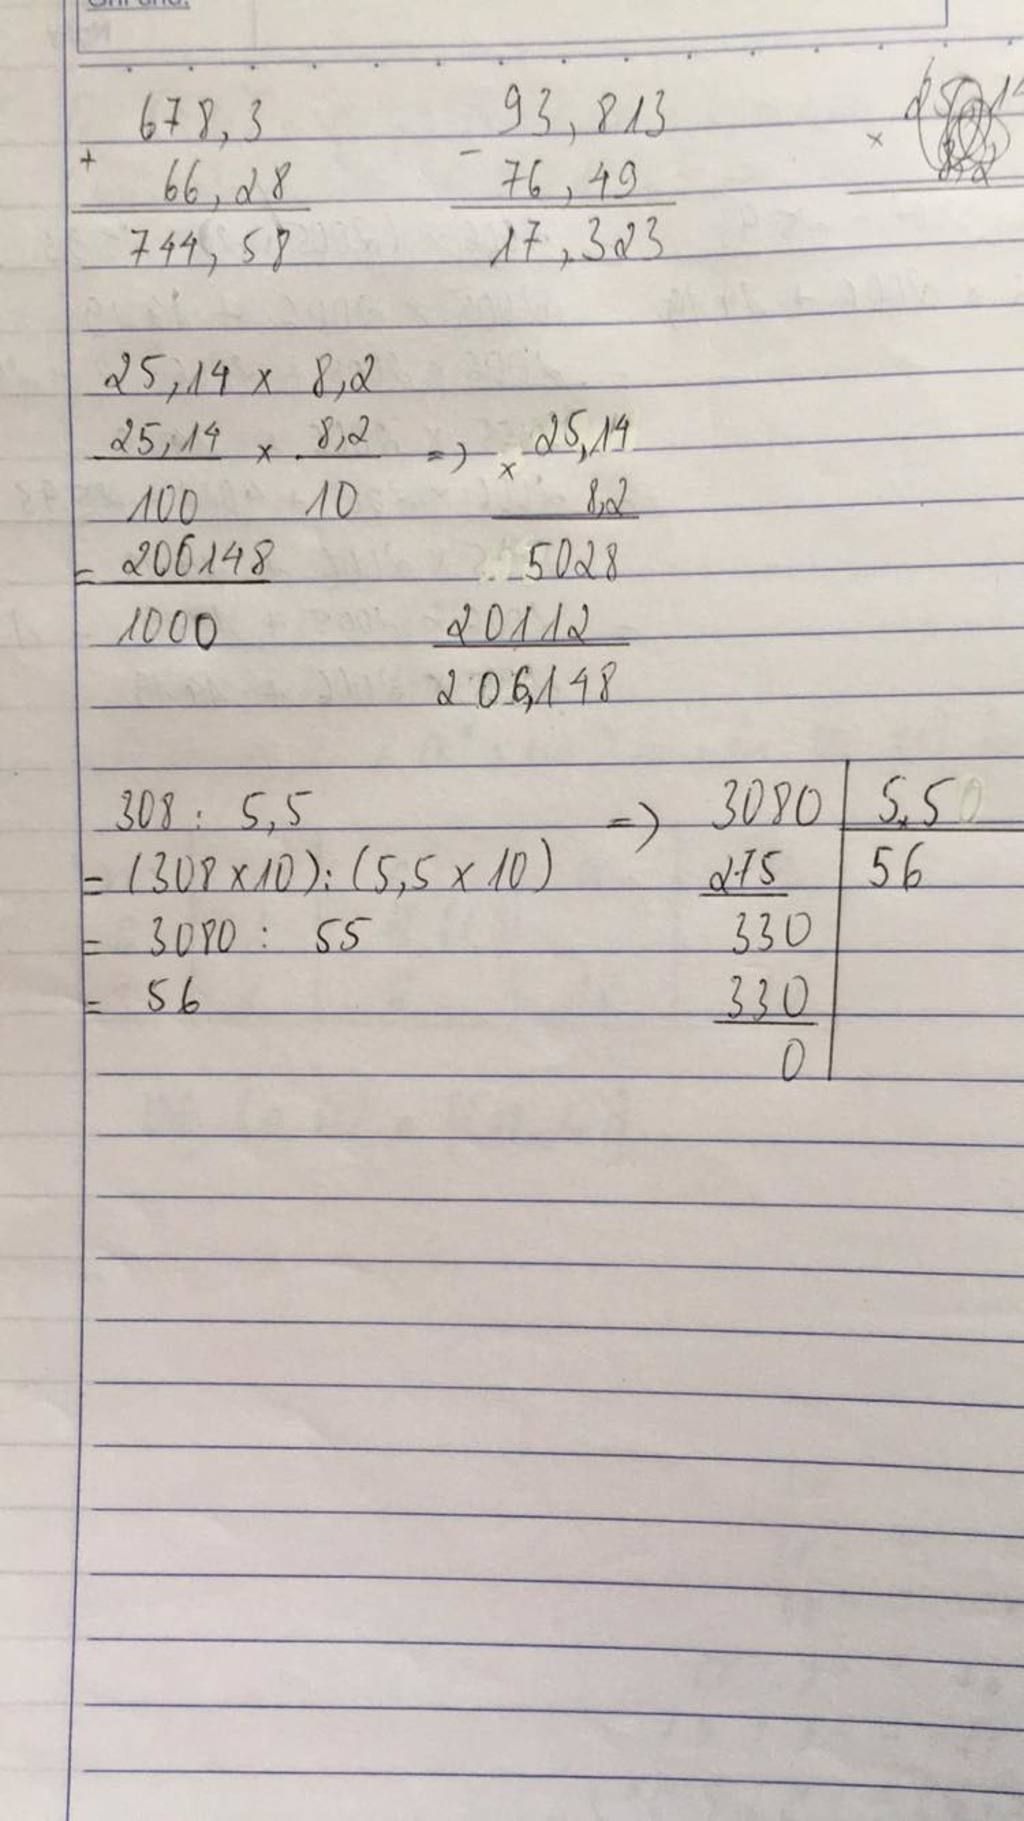 678,3
+
66,28
744,58
93,813
-
76,49
17,323
×
8,2
25,14 × 8,2
25,14 × 8,2 => 25,14
100 10 × 8,2
= 206148 5028
1000 20112
206,148
308 : 5,5 => 3080 5,5
= (308 × 10) : (5,5 × 10) 275 56
= 3080 : 55 330
= 56 330
0